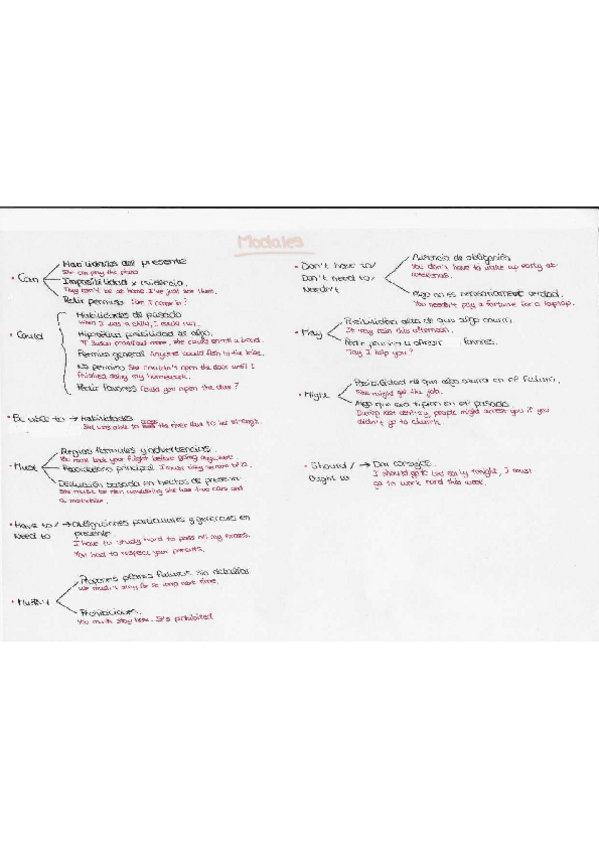 Modales
• Can
Habilidades del presente
She can play the piano
Imposibilidad x evidencia.
They can't be at home. I've just seen them.
Pedir permiso Can I come in?
• Could
Habilidades de pasado
When I was a child, I could run.
Hipotética posibilidad de algo.
If Susan practised more, she could enter a band.
Permiso general Anyone could fish to the lake.
No permiso She couldn't open the door until I
finished doing my homework.
Pedir favores Could you open the door?
• Be able to → Habilidades
She was able to the river due to be strength.
• Must
Reglas formales y advertencias.
You must book your flight before going anywhere.
Recordatorio principal I must
Deducción basada en hechos de presente.
She must be rich considering she has two cars and
a
• Have to/ → Obligaciones particulares y generales en
Need to presente
I have to study hard to pass all my exams.
You had to respect your parents.
• Mustn't
Proponer planes futuros sin detallar
We mustn't stay for so long next time.
Prohibiciones.
You mustn't stay here. It's prohibited
• Don't have to/
Don't need to/
Needn't
Ausencia de obligación
You don't have to wake up early at
weekends.
Algo no es necesariamente verdad.
You needn't pay a fortune for a laptop.
• May
Posibilidad alta de que algo ocurra.
It may rain this afternoon.
Pedir permiso u ofrecer favores.
May I help you?
• Might
Posibilidad de que algo ocurra en el futuro.
She might get the job.
Algo que era típico en el pasado
During last century, people might arrest you if you
didn't go to church.
• Should / → Dar consejos.
Ought to
I should go to bed early tonight, I must
go to work hard this week.